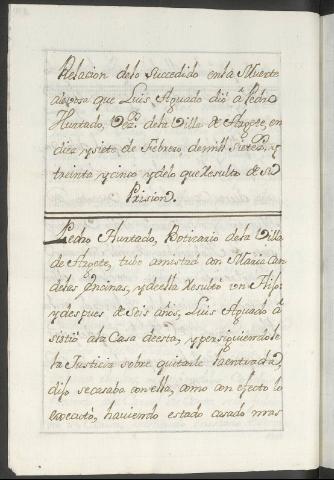 Relacion delo Succedido en la Muerte
alevosa que Luis Aguado diò à Pedro
Hurtado, Vezº. dela Villa de Argete, en
diez y siete de Febrero de mill Sietecos. y
treinta y cinco y delo que Resulta de su
Prision.
Pedro Hurtado, Boticario dela Villa
de Argete, tubo amistad con Maria Can
delas Encinas, y de ella Resultò un Hijo
y despues de Seis años, Luis Aguado à
sistiò ala Casa de esta, y persiguiendole
la Justicia sobre quitarle la entrada,
dijo se casaba con ella, como con efecto lo
executò, haviendo estado casado mas